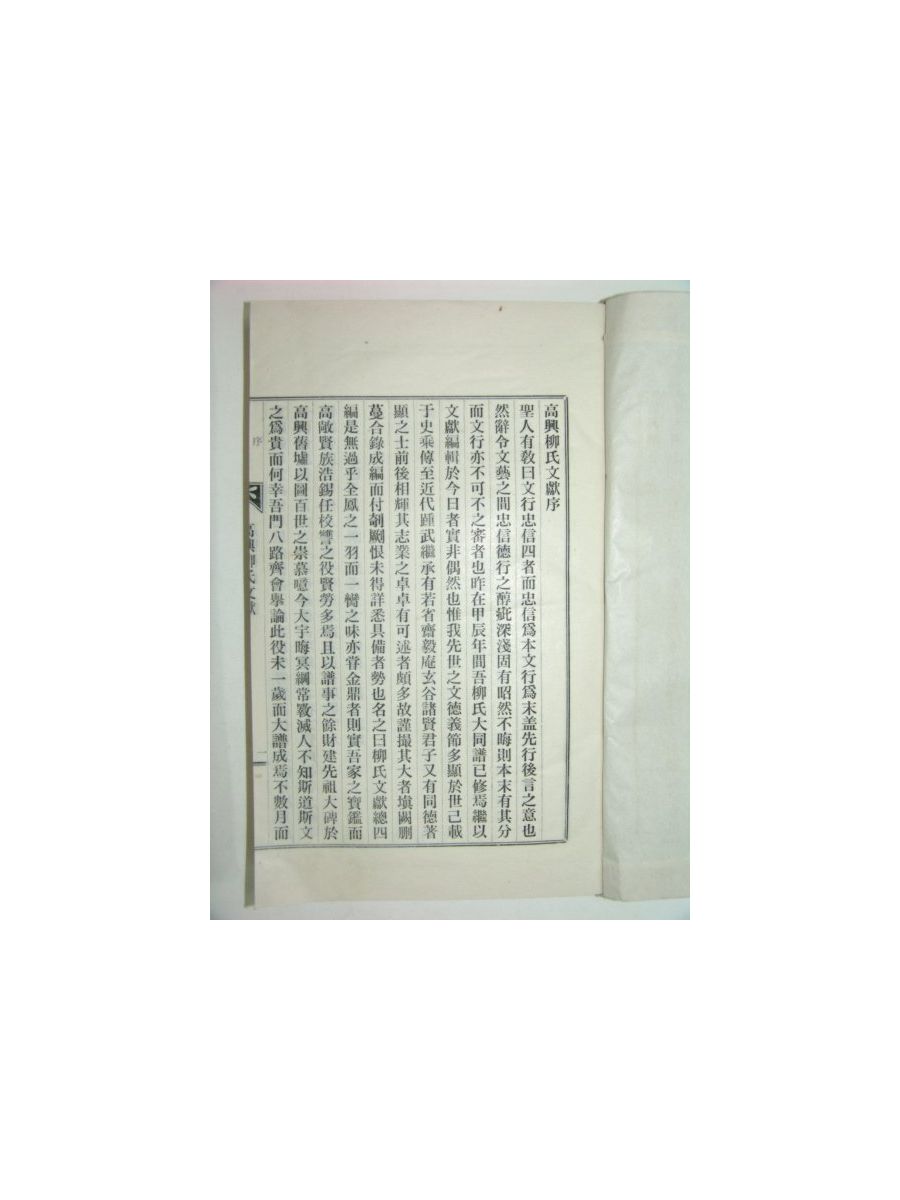 高興柳氏文獻序
聖人有敎曰文行忠信四者而忠信爲本文行爲末盖先行後言之意也
然辭令文藝之間忠信德行之醇疵深淺固有昭然不晦則本末有其分
而文行亦不可不之審者也昨在甲辰年間吾柳氏大同譜已修焉繼以
文獻編輯於今日者實非偶然也惟我先世之文德義節多顯於世己載
于史乘傳至近代踵武繼承有若省齋毅庵玄谷諸賢君子又有同德著
顯之士前後相輝其志業之卓卓有可述者頗多故謹撮其大者塡闕刪
蔓合錄成編而付剞劂恨未得詳悉具備者勢也名之曰柳氏文獻總四
編是無過乎全鳳之一羽而一臠之味亦甞金鼎者則實吾家之寶鑑而
高敞賢族浩錫任校讐之役賢勞多焉且以譜事之餘財建先祖大碑於
高興舊墟以圖百世之崇慕噫今大宇晦冥綱常斁滅人不知斯道斯文
之爲貴而何幸吾門八路齊會擧論此役未一歲而大譜成焉不數月而
序
高興柳氏文獻
一